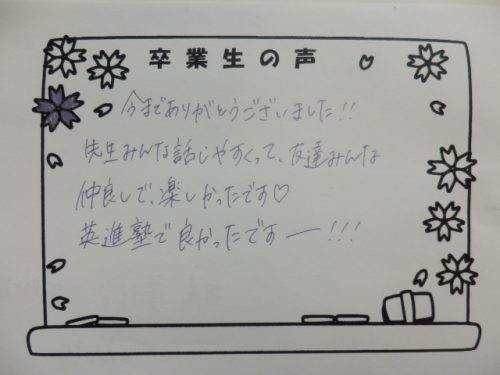 卒業生の声
今までありがとうございました!!
先生みんな話しやすくって、友達みんな
仲良しで、楽しかったです♡
英進塾で良かったですー!!!